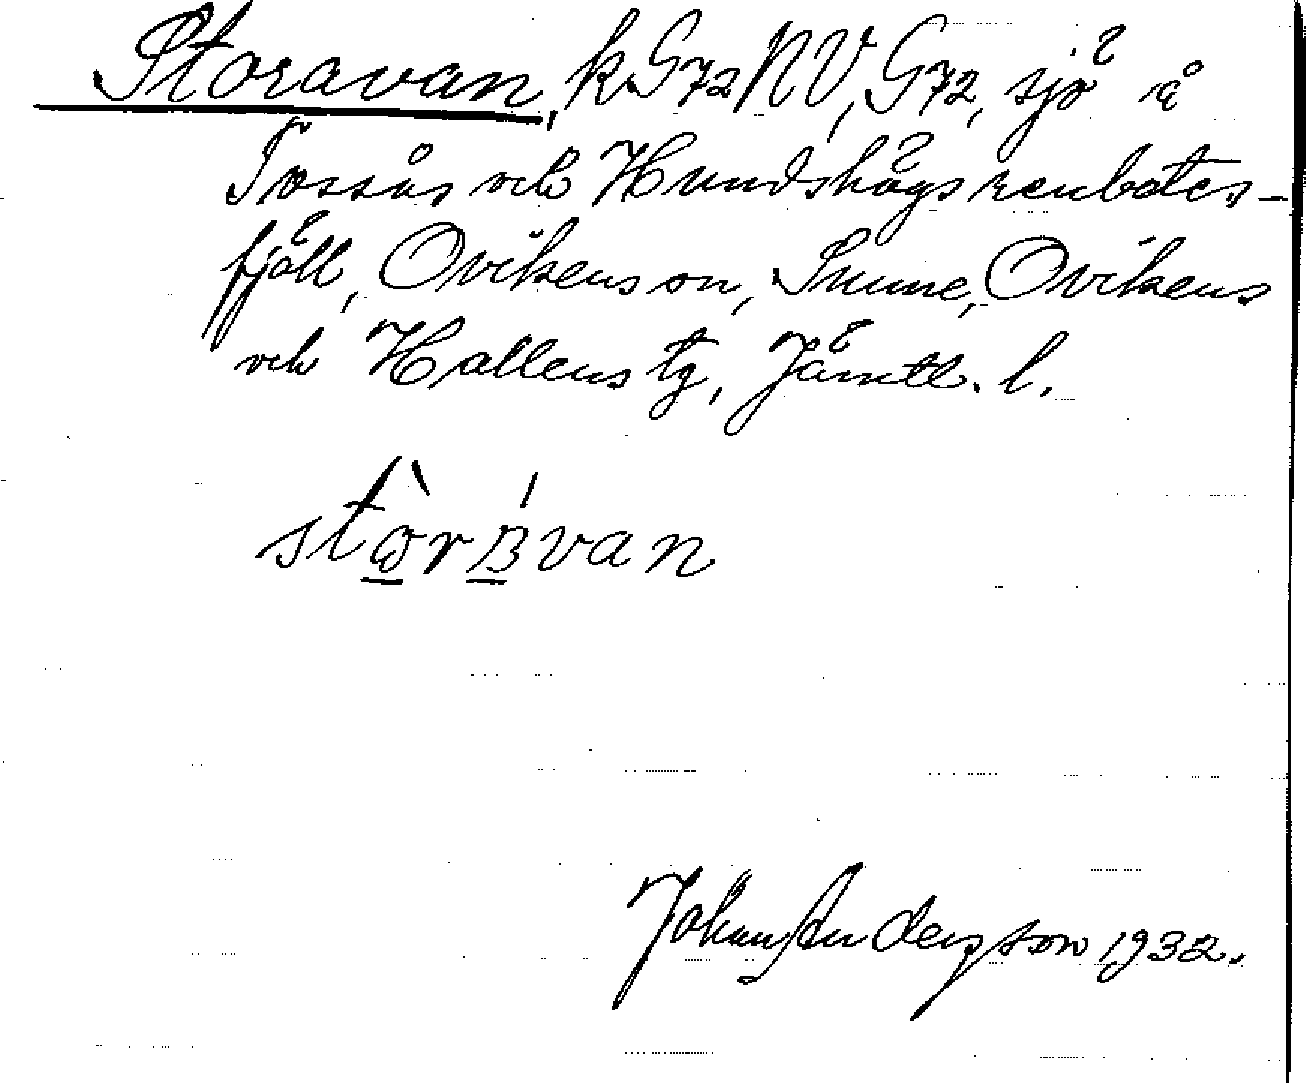 Storavan, k. G72 NV, G72, sjö å
Tossås och Hundshögs renbetes-
fjäll, Ovikens sn, Sunne, Ovikens
och Hallens tg, Jämtl. l.
Johan Anderson 1932.